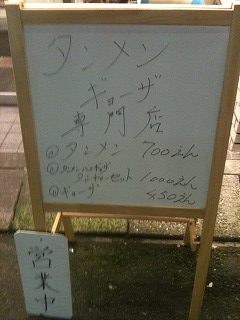 タンメン
ギョーザ
専門店
タンメン 700えん
タンギョーセット 1000えん
ギョーザ 450えん
営業中